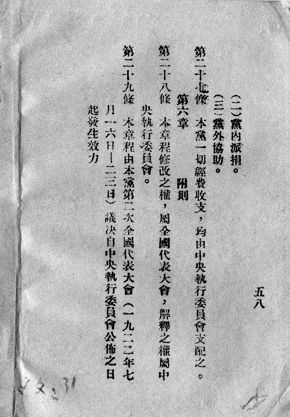 五八
(二)黨內派捐。
(三)黨外協助。
第二十七條 本黨一切經費收支,均由中央執行委員會支配之。
第六章 附則
第二十八條 本章程修改之權,屬全國代表大會,解釋之權屬中
央執行委員會。
第二十九條 本章程由本黨第二次全國代表大會(一九二二年七
月一六日—二三日)議決自中央執行委員會公佈之日
起發生效力